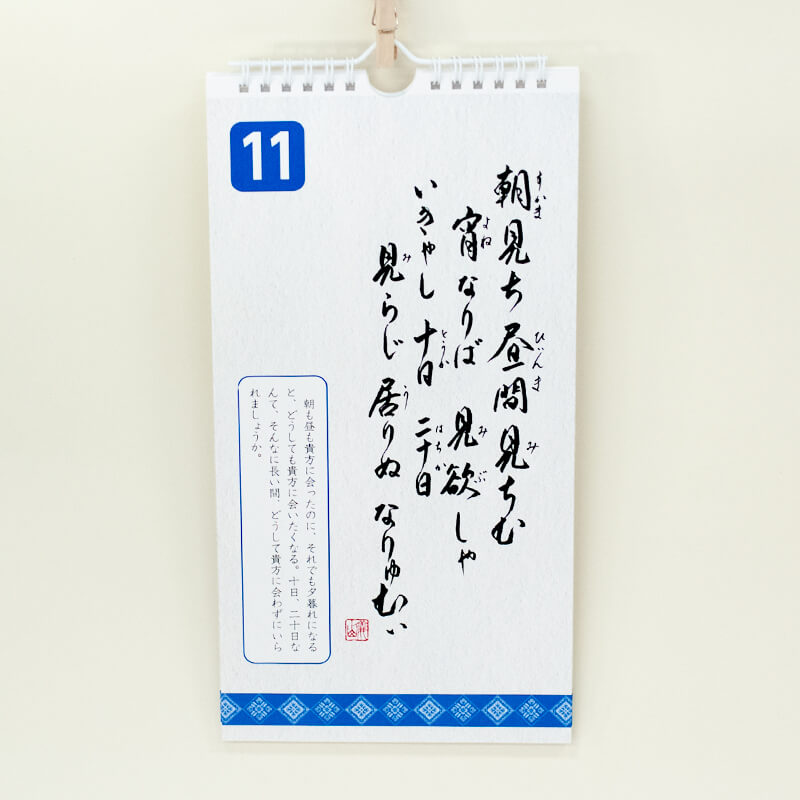 11
朝見ち 昼間見ちむ
宵なりば 見欲しゃ
いきゃし 十日 二十日
見らじ 居りぬ なりゅむい
すかま
ひんま
み
よね
み
ぶ
とぅか
はちか
み
う
朝も昼も貴方に会ったのに、それでも夕暮れになる
と、どうしても貴方に会いたくなる。十日、二十日な
んて、そんなに長い間、どうして貴方に会わずにいら
れましょうか。